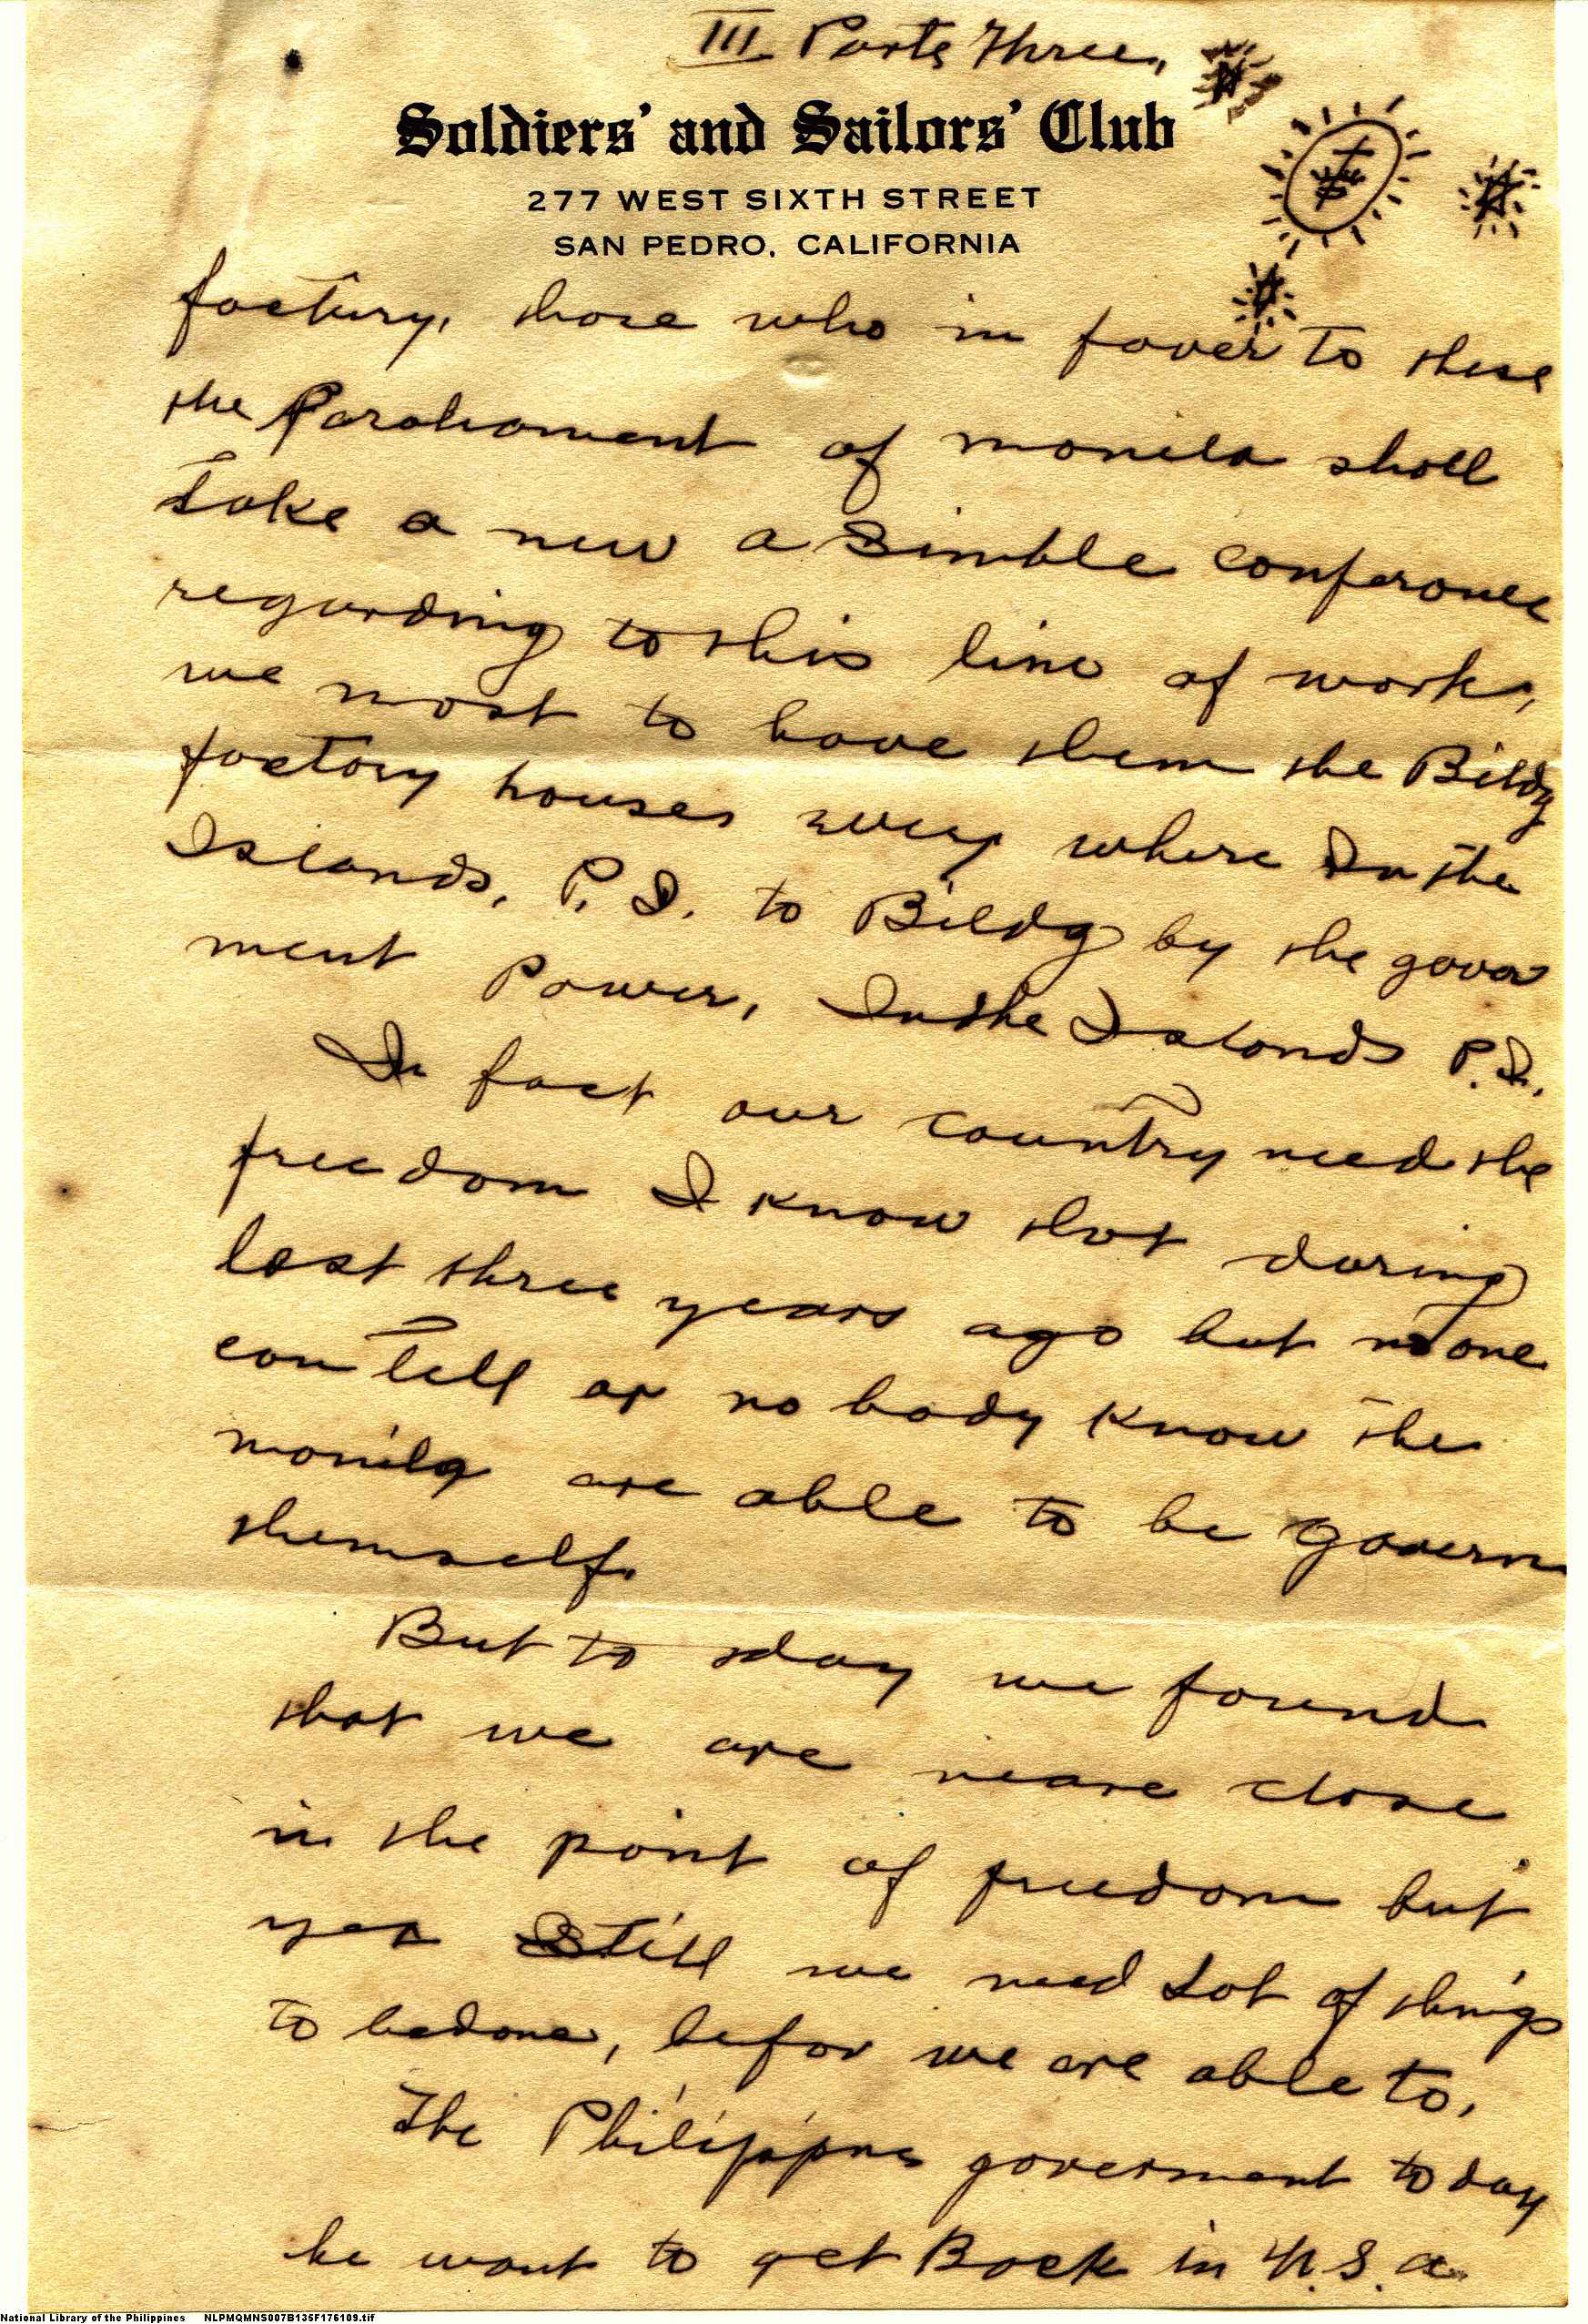 III Parts Three,
Soldiers' and Sailors' Club
277 WEST SIXTH STREET
SAN PEDRO, CALIFORNIA
factury, those who in faver to these
the Paraliament of manila shall
take a new a Simble conferance
regarding to this line of work,
we most to have them the Bildg
factory houses every where In the
Islands, P. I. to Bildg by the gover
ment Power, In the Islands P.I.
In fact our country need the
freedom I know that during
last three years ago but no one
can tell or no body know the
manila are able to be govern
themself.
But to day we found
that we are neare close
in the point of freedom but
yea Still we need Lot of things
to bedone, befor we are able to,
The Philippine goverment to day
he want to get Back in U.S.a
National Library of the Philippines NLPMQMNS007B135F176109.tif